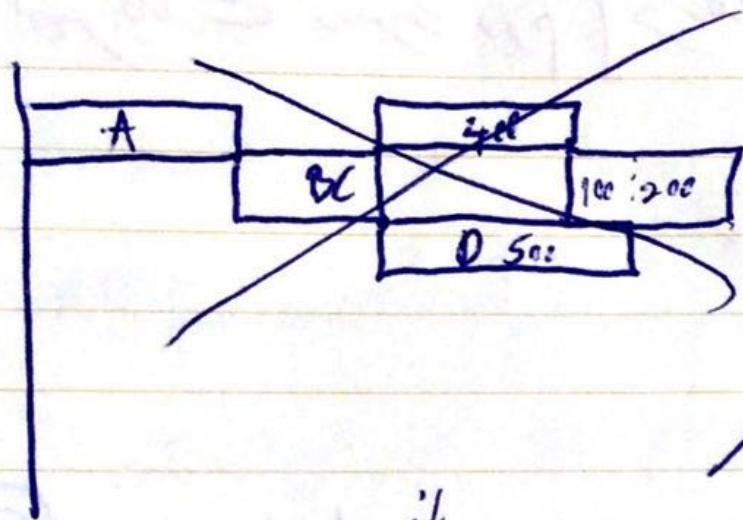 A
400
BC
100 200
D 500